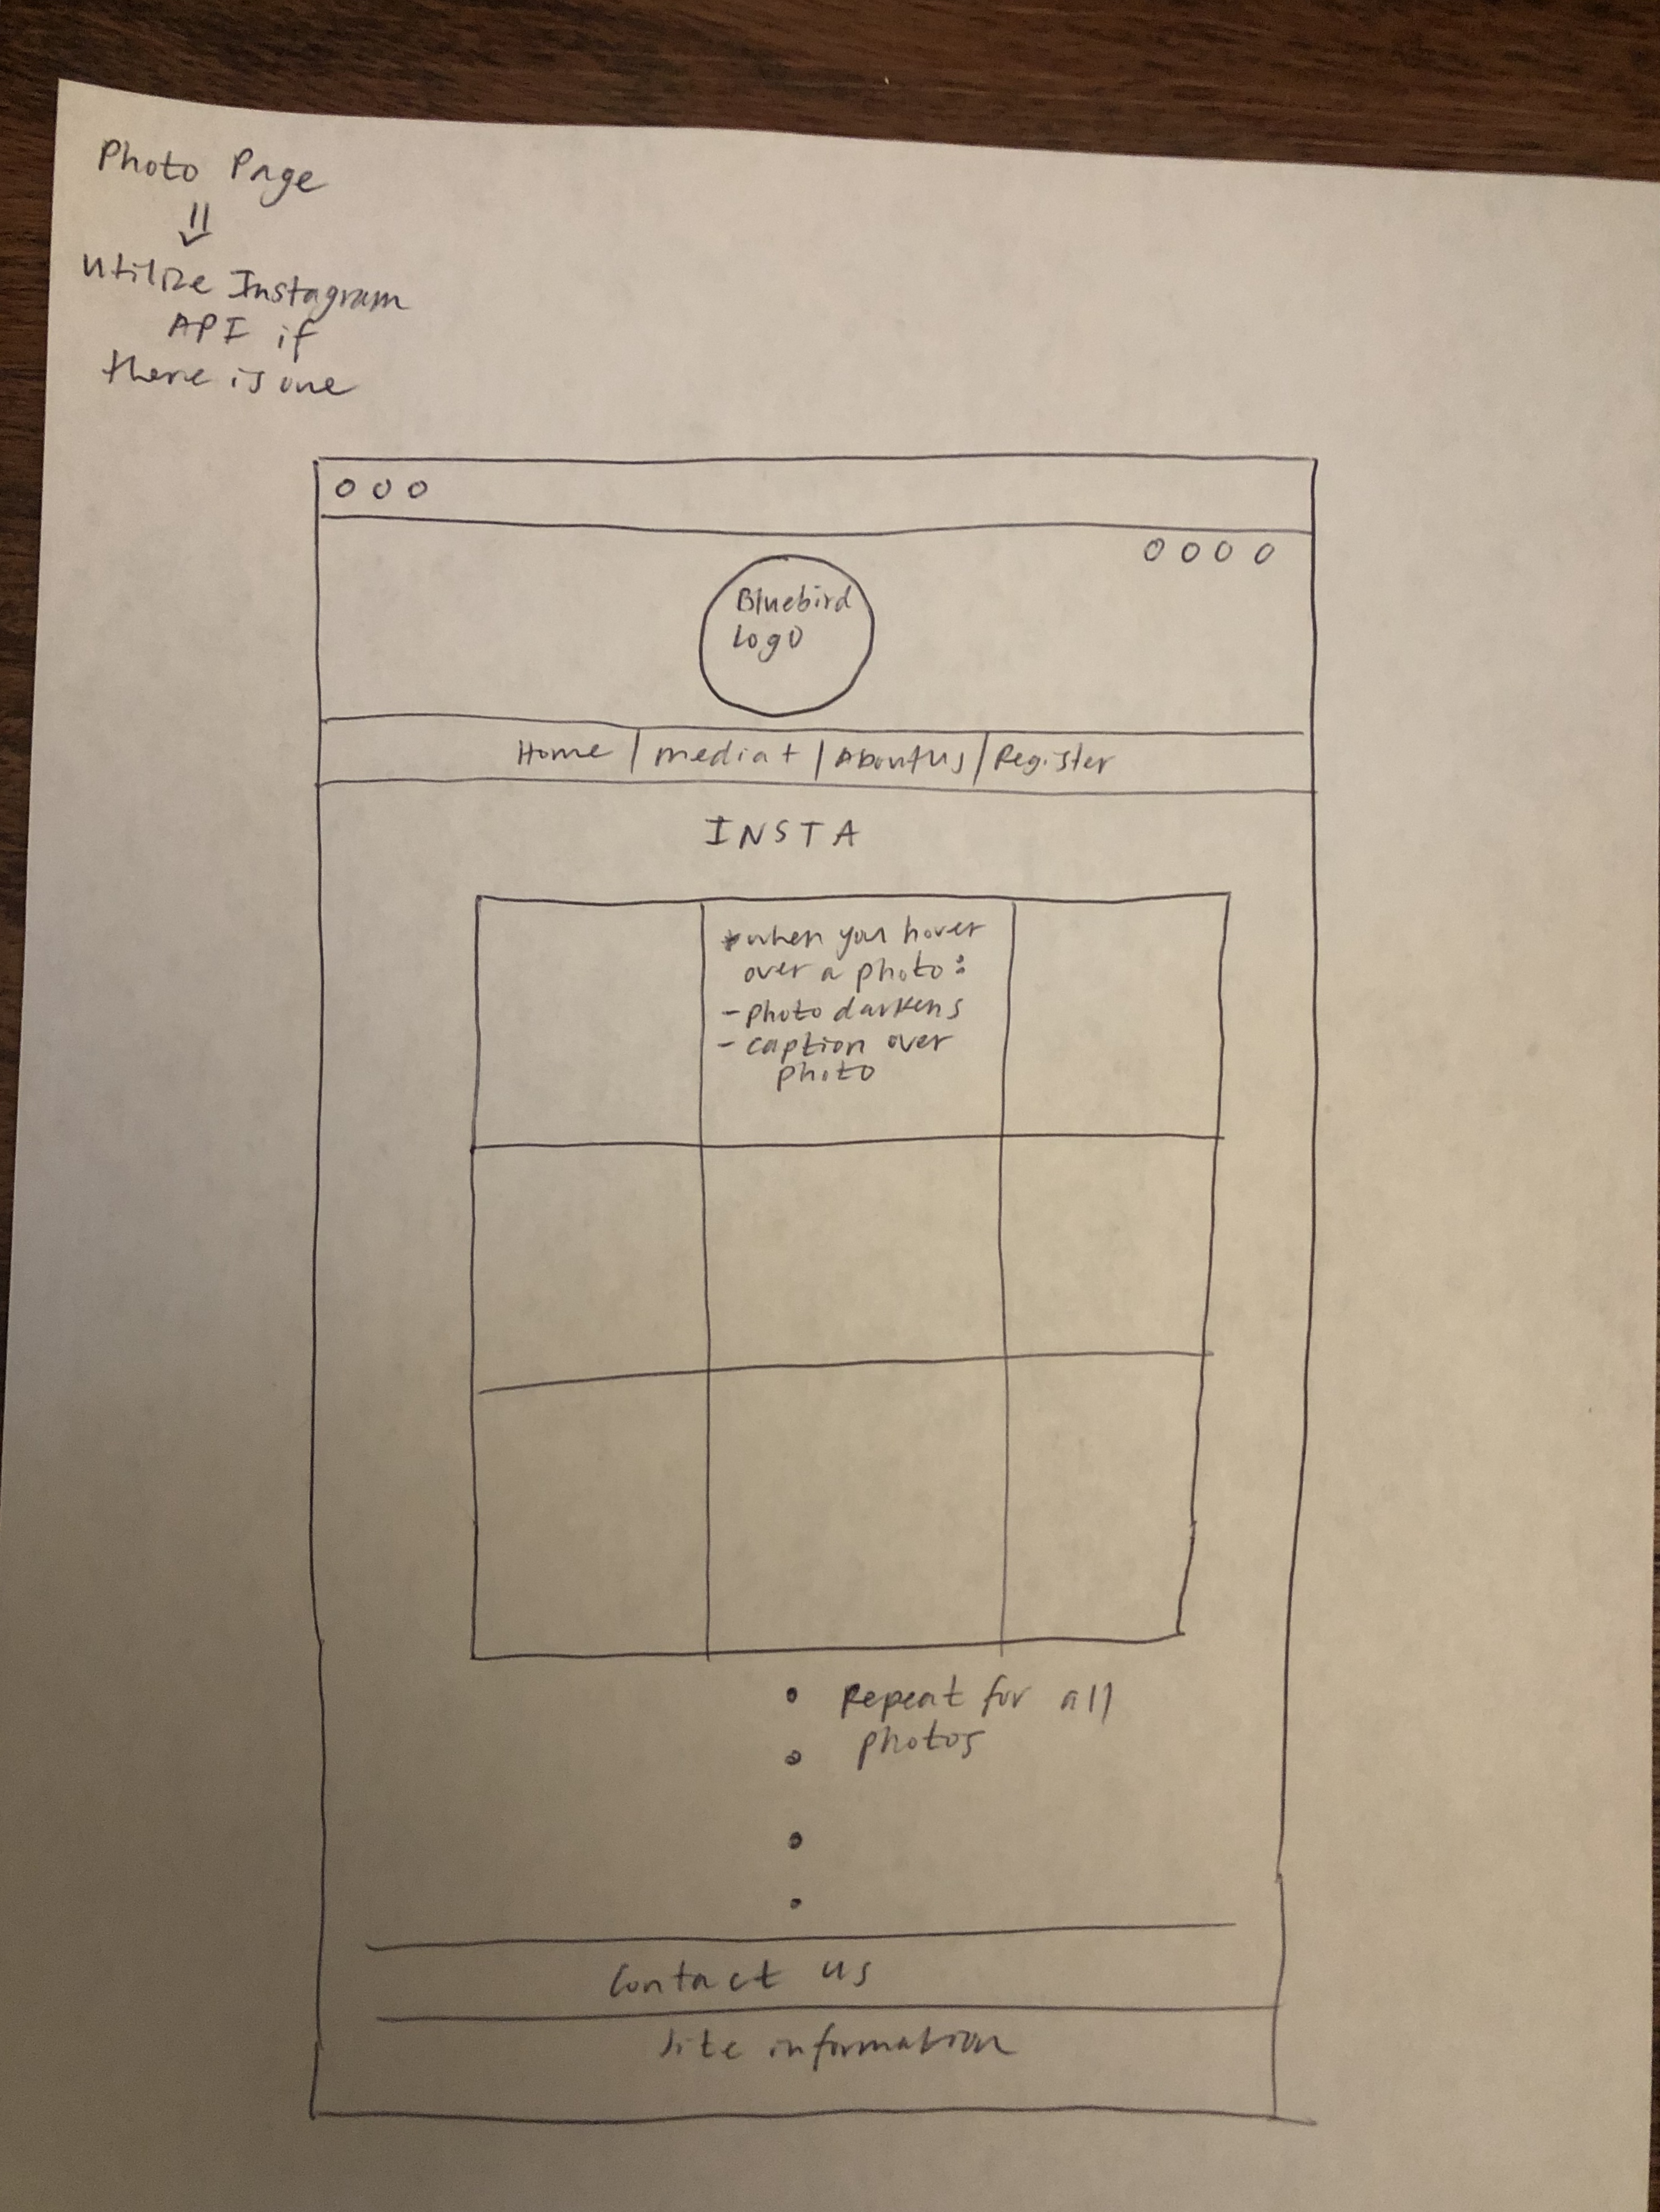 Photo Page
utilize Instagram
API if
there is one
Bluebird
Logo
Home | media + | About Us | Register
INSTA
*when you hover
over a photo:
- photo darkens
- caption over
photo
Repeat for all
photos
Contact us
Site information